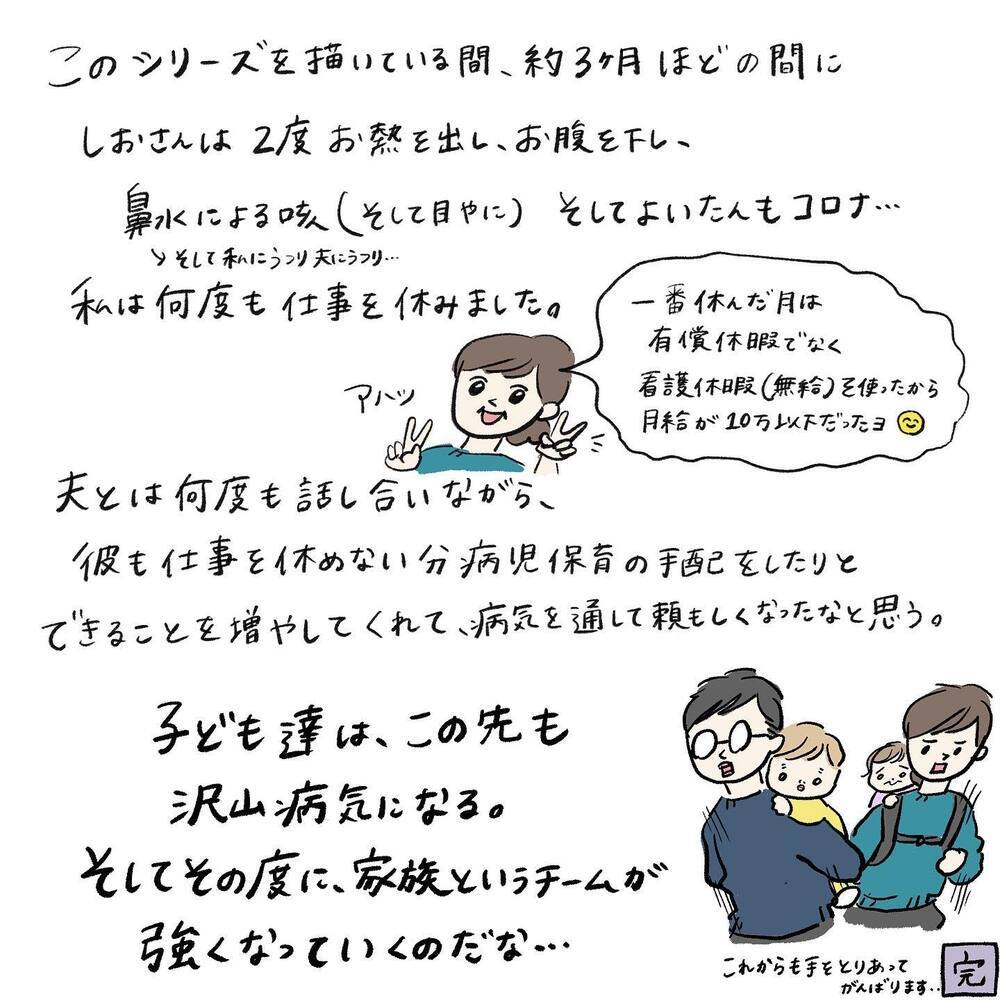 このシリーズを描いている間、約3ヶ月ほどの間に
しおさんは2度お熱を出し、お腹を下し、
鼻水による咳(そして目やに) そしてよいたんもコロナ…
↘そして私にうつり夫にうつり…
私は何度も仕事を休みました。
一番休んだ月は
有償休暇でなく
看護休暇(無給)を使ったから
月給が10万以下だったヨ
アハッ
夫とは何度も話し合いながら、
彼も仕事を休めない分病児保育の手配をしたりと
できることを増やしてくれて、病気を通して頼もしくなったなと思う。
子ども達は、この先も
沢山病気になる。
そしてその度に、家族というチームが
強くなっていくのだな…
これからも手をとりあって
がんばります…
完